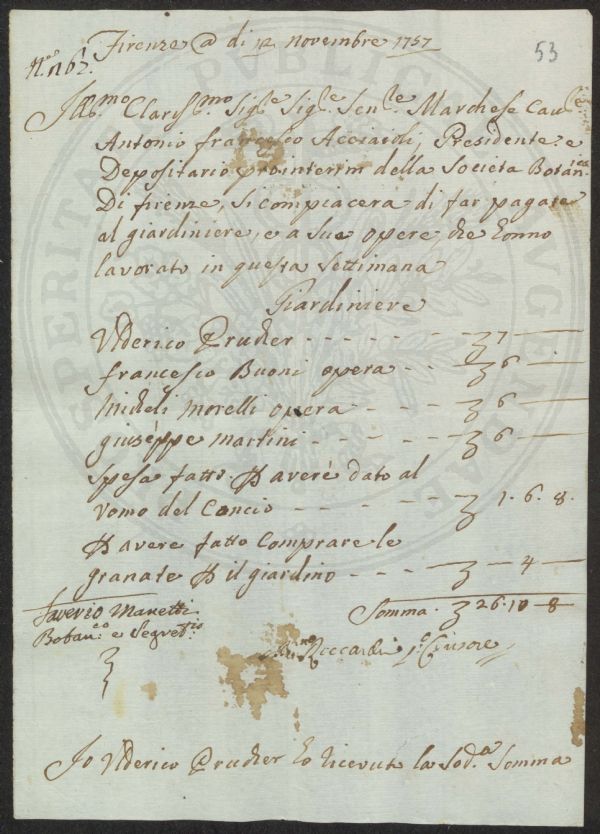 Firenze @ di 12 Novembre 1757
53
N.° 162.
Ill.mo Clariss.mo Sig.re Sig.re Sen.re Marchese Cav.re
Antonio francesco Acciaioli, Presidente e
Depositario prointerim della Societa Botan.ca
Di firenze, si compiacera di far pagare
al giardiniere, e a sue opere, che Eonno
lavorato in questa settimana
Giardiniere
Vderico Prucher - - - - - 7 —
francesco Buoni opera - - 6 —
Micheli Morelli opera - - - 6 —
giuseppe Martini - - - - - 6 —
spesa fatto P avere dato al
Vomo del Concio - - - - - 1. 6. 8.
P avere fatto Comprare le
granate P il giardino - - - — 4 —
Saverio Manetti
Somma. 26. 10 - 8
Botan.co e Segret.rio
Riccardi P.° Censore
Io Vderico Prucher Eo ricevuto la Sod.a Somma